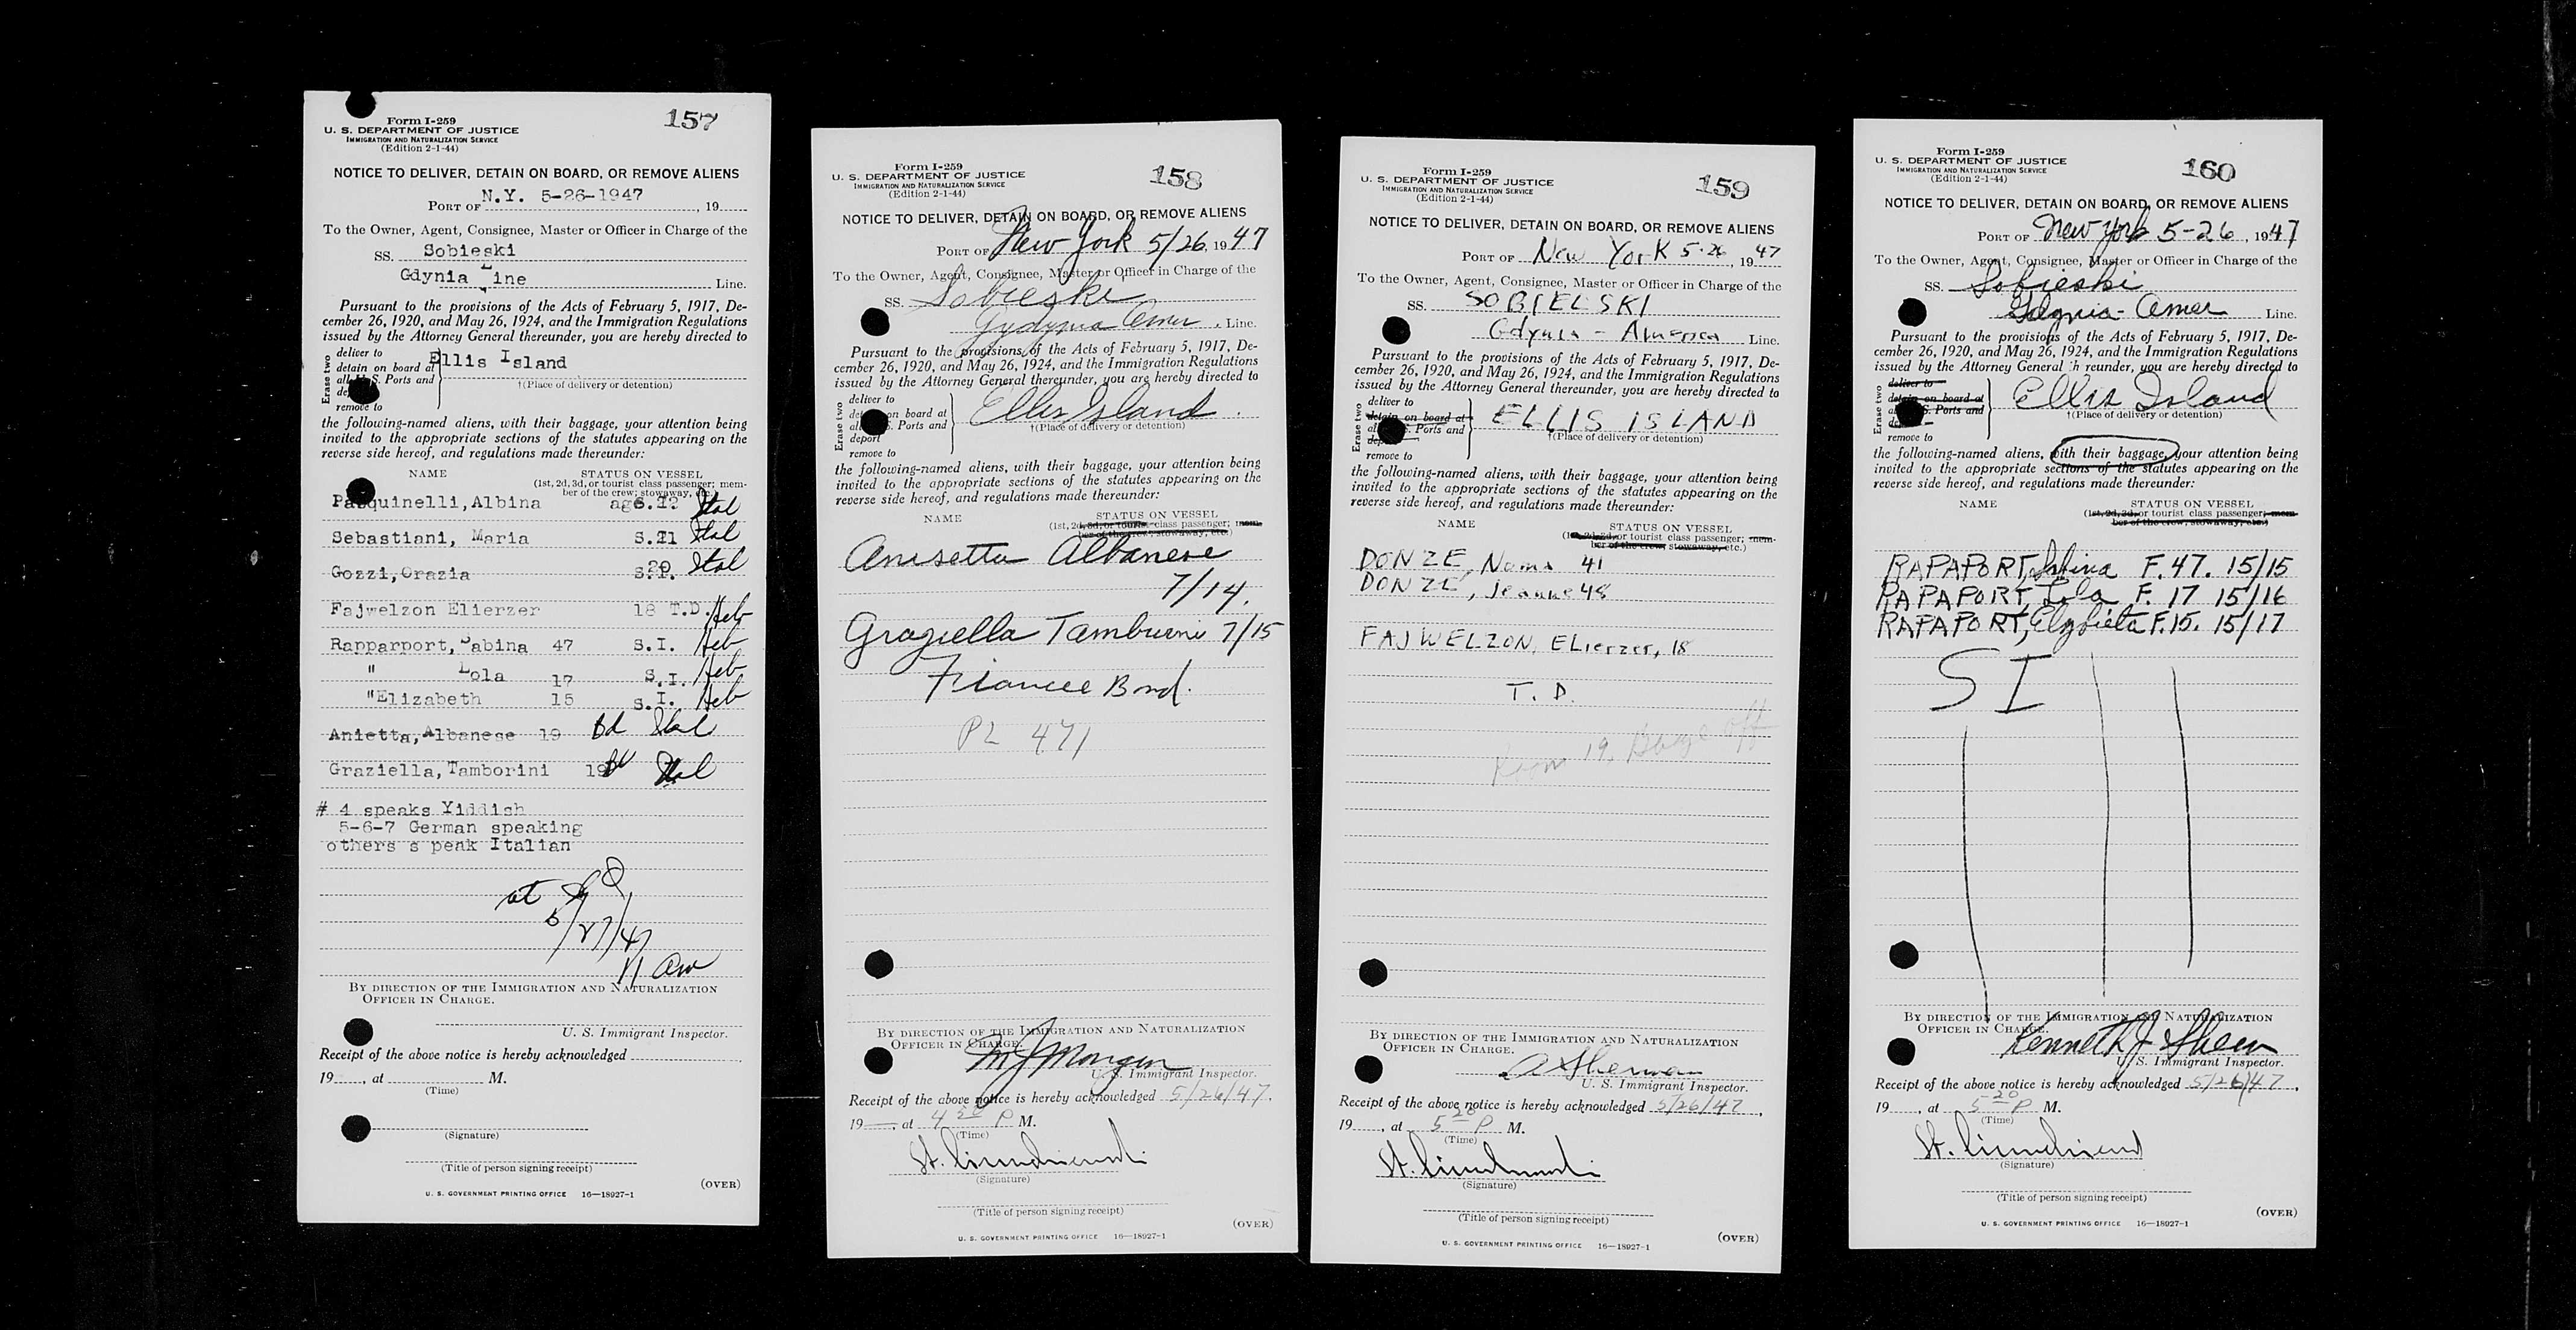 Form I-259
U. S. DEPARTMENT OF JUSTICE
IMMIGRATION AND NATURALIZATION SERVICE
(Edition 2-1-44)
157
NOTICE TO DELIVER, DETAIN ON BOARD, OR REMOVE ALIENS
PORT OF N.Y. 5-26-1947, 19
To the Owner, Agent, Consignee, Master or Officer in Charge of the
SS. Sobieski
Gdynia Line Line.
Pursuant to the provisions of the Acts of February 5, 1917, De-
cember 26, 1920, and May 26, 1924, and the Immigration Regulations
issued by the Attorney General thereunder, you are hereby directed to
Erase two
deliver to
detain on board at
all U.S. Ports and
remove to
Ellis Island
†(Place of delivery or detention)
the following-named aliens, with their baggage, your attention being
invited to the appropriate sections of the statutes appearing on the
reverse side hereof, and regulations made thereunder:
NAME STATUS ON VESSEL
(1st, 2d, 3d, or tourist class passenger; mem-
ber of the crew; stowaway, etc.)
Pasquinelli, Albina Ital
Sebastiani, Maria S.I. Ital
Gozzi, Orazia S.I. Ital
Fajwelzon Elierzer 18 T.D. Heb
Rapparport, Sabina 47 S.I. Heb
" Lola 17 S.I. Heb
" Elizabeth 15 S.I. Heb
Anietta, Albanese 19 Bd Ital
Graziella, Tamborini 19 Bd Ital
# 4 speaks Yiddish
5-6-7 German speaking
others s peak Italian
at
5/27/47
11 am
BY DIRECTION OF THE IMMIGRATION AND NATURALIZATION
OFFICER IN CHARGE.
U. S. Immigrant Inspector.
Receipt of the above notice is hereby acknowledged
19, at M.
(Time)
(Signature)
(Title of person signing receipt)
U. S. GOVERNMENT PRINTING OFFICE 16—18927-1
(OVER)
Form I-259
U. S. DEPARTMENT OF JUSTICE
IMMIGRATION AND NATURALIZATION SERVICE
(Edition 2-1-44)
158
NOTICE TO DELIVER, DETAIN ON BOARD, OR REMOVE ALIENS
PORT OF New York 5/26, 1947
To the Owner, Agent, Consignee, Master or Officer in Charge of the
SS. Sobieski
Gydynia Amer. Line.
Pursuant to the provisions of the Acts of February 5, 1917, De-
cember 26, 1920, and May 26, 1924, and the Immigration Regulations
issued by the Attorney General thereunder, you are hereby directed to
Erase two
deliver to
on board at
Ports and
deport
remove to
Ellis Island
†(Place of delivery or detention)
the following-named aliens, with their baggage, your attention being
invited to the appropriate sections of the statutes appearing on the
reverse side hereof, and regulations made thereunder:
NAME STATUS ON VESSEL
(1st, 2d, 3d, or tourist class passenger; mem-
ber of the crew; stowaway, etc.)
Anisetta Albanese
7/14.
Graziella Tamburini 7/15
Fiancee Bond.
PL 471
BY DIRECTION OF THE IMMIGRATION AND NATURALIZATION
OFFICER IN CHARGE.
U. S. Immigrant Inspector.
Receipt of the above notice is hereby acknowledged 5/26/47.
19, at P M.
(Time)
(Signature)
(Title of person signing receipt)
(OVER)
U. S. GOVERNMENT PRINTING OFFICE 16—18927-1
Form I-259
U. S. DEPARTMENT OF JUSTICE
IMMIGRATION AND NATURALIZATION SERVICE
(Edition 2-1-44)
159
NOTICE TO DELIVER, DETAIN ON BOARD, OR REMOVE ALIENS
PORT OF New York 5-26, 1947
To the Owner, Agent, Consignee, Master or Officer in Charge of the
SS. SOBIELSKI
Gdynia - America Line.
Pursuant to the provisions of the Acts of February 5, 1917, De-
cember 26, 1920, and May 26, 1924, and the Immigration Regulations
issued by the Attorney General thereunder, you are hereby directed to
Erase two
deliver to
detain on board at
Ports and
remove to
ELLIS ISLAND
†(Place of delivery or detention)
the following-named aliens, with their baggage, your attention being
invited to the appropriate sections of the statutes appearing on the
reverse side hereof, and regulations made thereunder:
NAME STATUS ON VESSEL
(1st, 2d, 3d, or tourist class passenger; mem-
ber of the crew; stowaway, etc.)
DONZE, Noma 41
DONZE, Jeanne 48
FAJWELZON, ELierzer, 18
T. D.
Room 19, Bage Off
BY DIRECTION OF THE IMMIGRATION AND NATURALIZATION
OFFICER IN CHARGE.
A Sherman
U. S. Immigrant Inspector.
Receipt of the above notice is hereby acknowledged 5/26/47,
19, at 5 20 P M.
(Time)
(Signature)
(Title of person signing receipt)
(OVER)
U. S. GOVERNMENT PRINTING OFFICE 16—18927-1
Form I-259
U. S. DEPARTMENT OF JUSTICE
IMMIGRATION AND NATURALIZATION SERVICE
(Edition 2-1-44)
160
NOTICE TO DELIVER, DETAIN ON BOARD, OR REMOVE ALIENS
PORT OF New York 5-26, 1947
To the Owner, Agent, Consignee, Master or Officer in Charge of the
SS. Sobieski
Gdynia-Amer Line.
Pursuant to the provisions of the Acts of February 5, 1917, De-
cember 26, 1920, and May 26, 1924, and the Immigration Regulations
issued by the Attorney General th reunder, you are hereby directed to
Erase two
deliver to
detain on board at
Ports and
remove to
Ellis Island
†(Place of delivery or detention)
the following-named aliens, with their baggage, your attention being
invited to the appropriate sections of the statutes appearing on the
reverse side hereof, and regulations made thereunder:
NAME STATUS ON VESSEL
(1st, 2d, 3d, or tourist class passenger; mem-
ber of the crew; stowaway, etc.)
RAPAPORT, Sabina F. 47. 15/15
RAPAPORT, Lola F. 17 15/16
RAPAPORT, Elzbieta F. 15. 15/17
SI
BY DIRECTION OF THE IMMIGRATION AND NATURALIZATION
OFFICER IN CHARGE.
Kenneth J
U. S. Immigrant Inspector.
Receipt of the above notice is hereby acknowledged 5/26/47,
19, at 5 20 P M.
(Time)
(Signature)
(Title of person signing receipt)
(OVER)
U. S. GOVERNMENT PRINTING OFFICE 16—18927-1